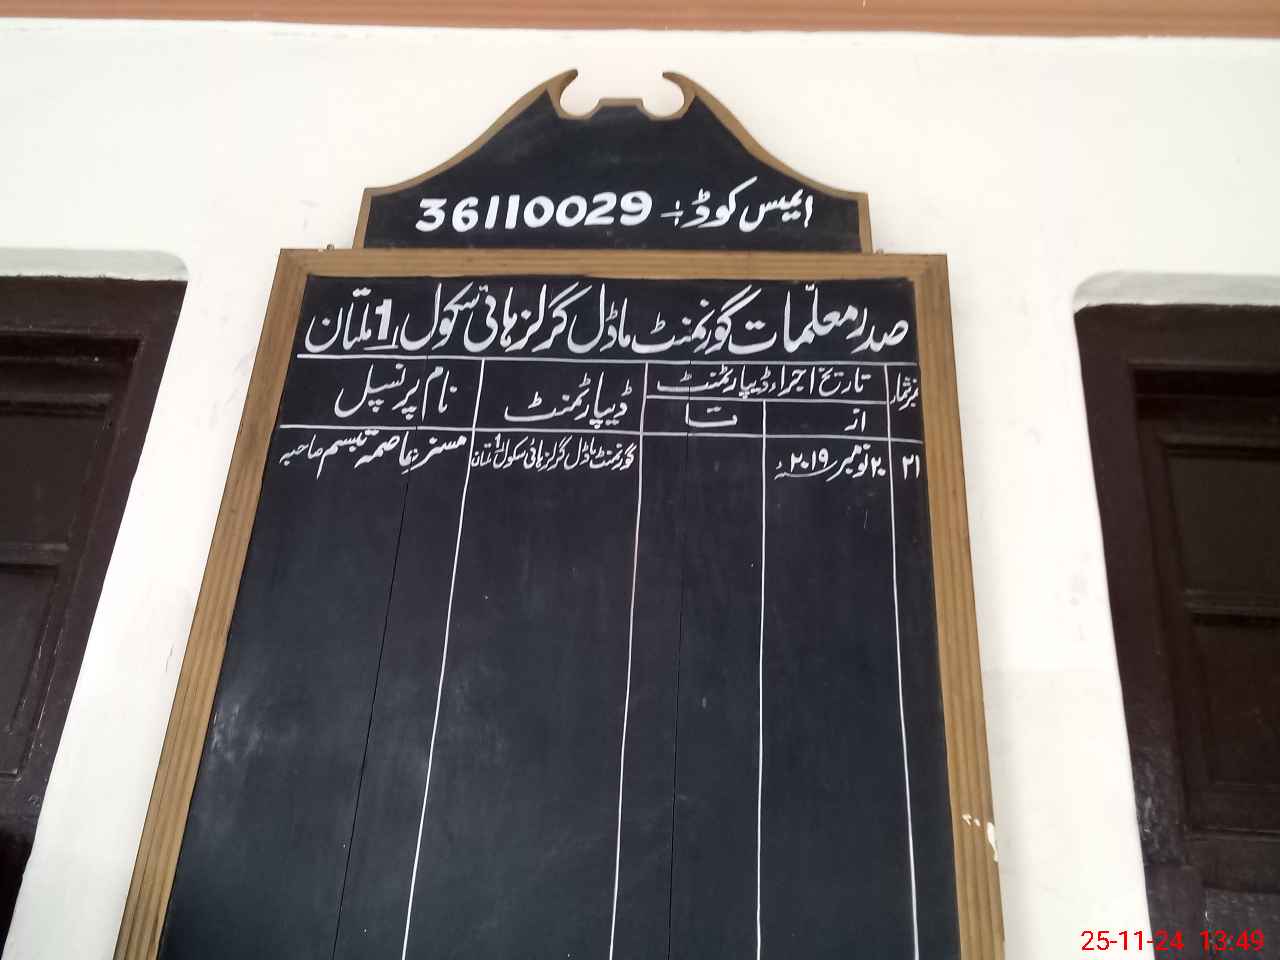 ایمیس کوڈ:- 36110029
صدر معلّمات گورنمنٹ ماڈل گرلز ہائی سکول 1 ملتان
نمبر شمار تاریخ اجراء ڈیپارٹمنٹ ڈیپارٹمنٹ نام پرنسپل
از تا
۲۱ ۲۰ نومبر ۲۰۱۹ء گورنمنٹ ماڈل گرلز ہائی سکول 1 ملتان مسنر عاصمہ تبسم صاحبہ
25-11-24 13:49